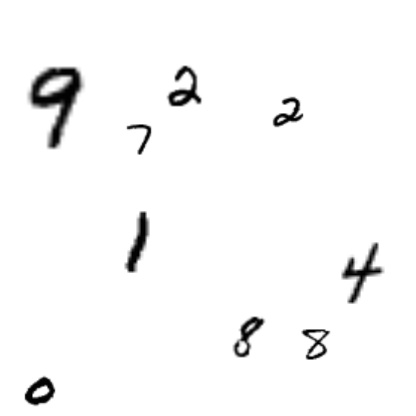 9 7 2 2
1
4
8 8
0